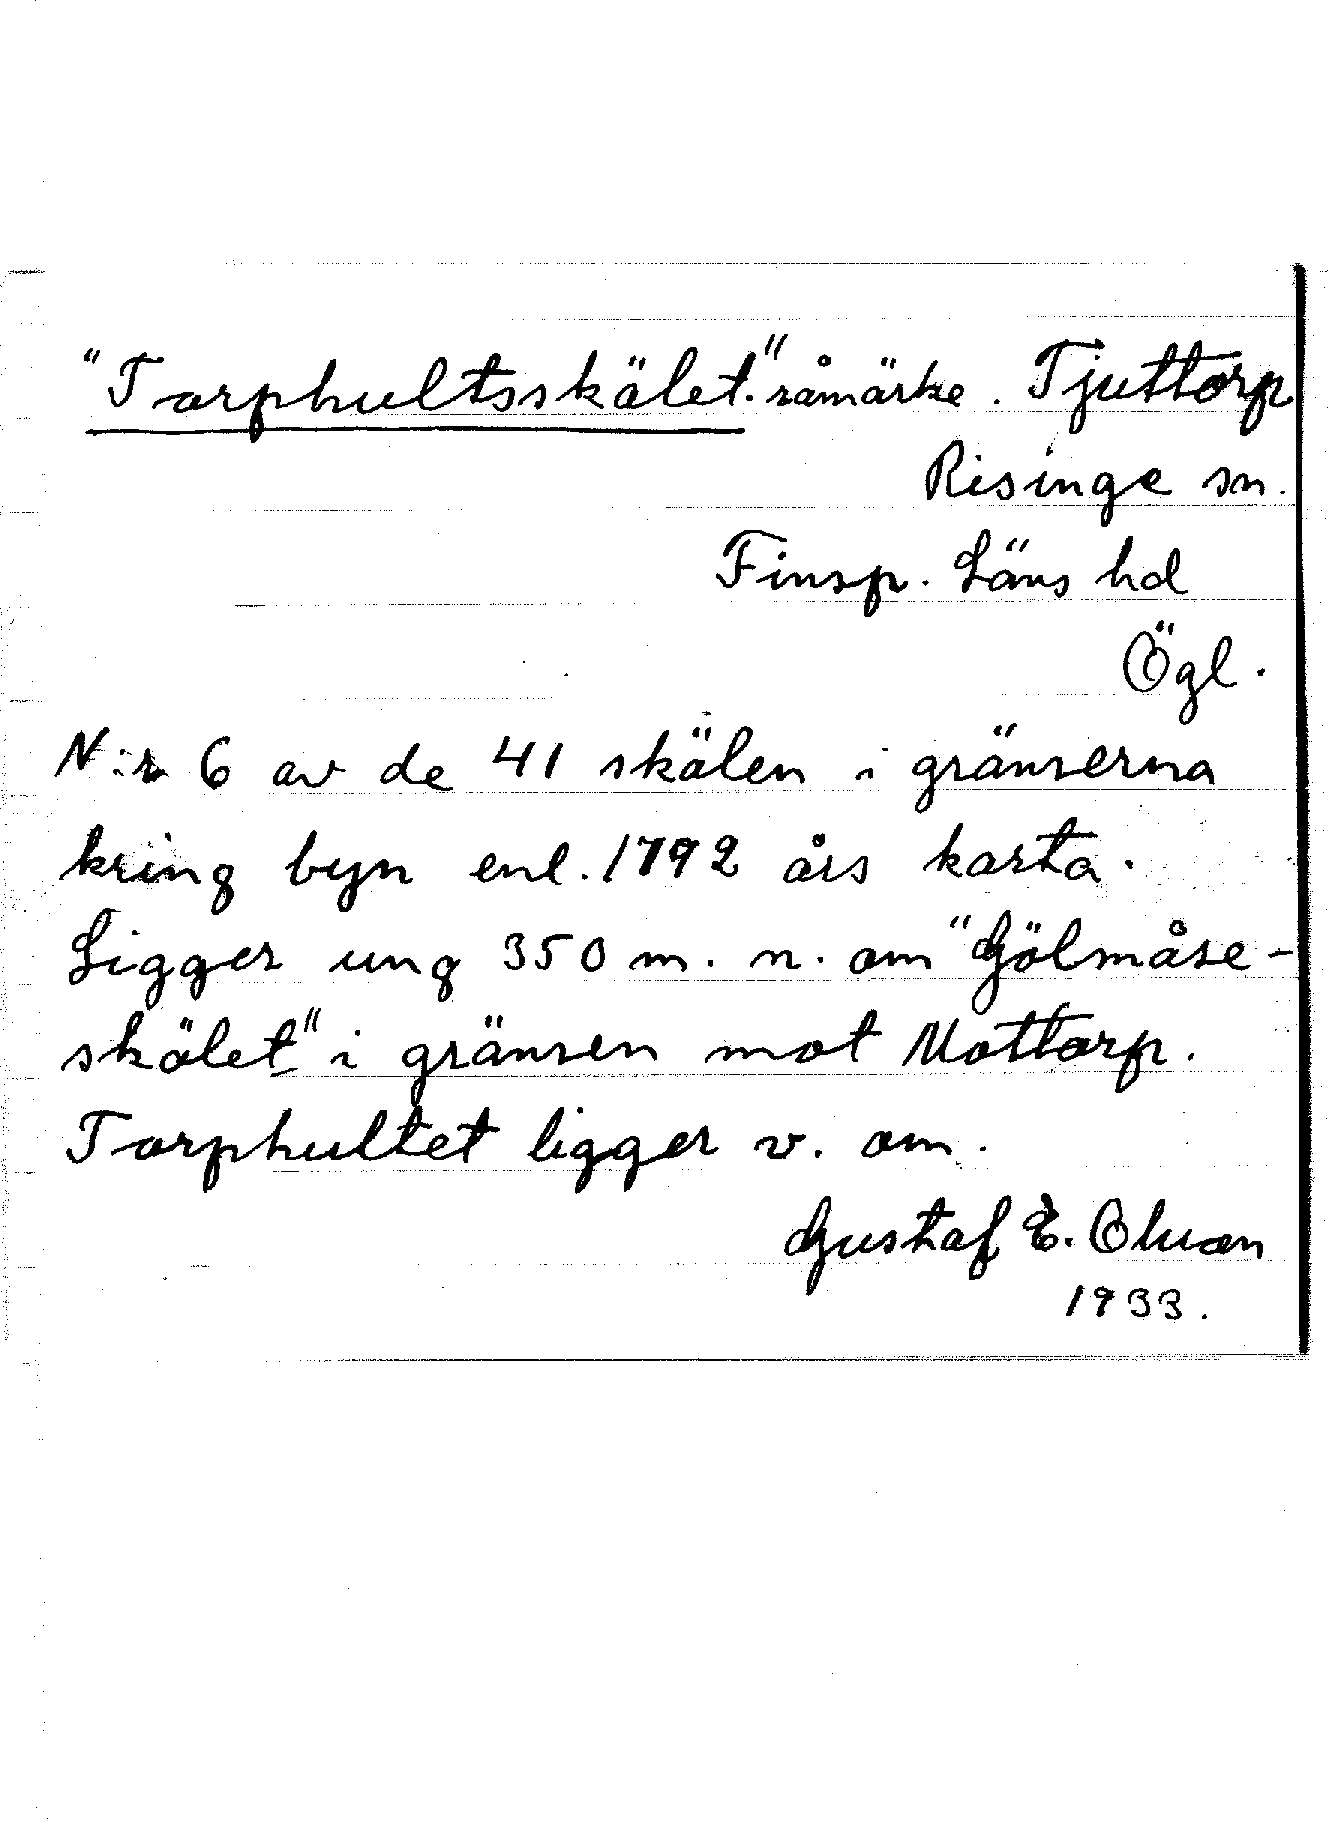 "Torphultsskälet." råmärke. Tjuttorp
Risinge sn.
Finsp. Läns hd
Ögl.
N:r 6 av de 41 skälen i gränserna
kring byn enl. 1792 års karta.
Ligger ung 350 m. n. om "Gölmåse-
skälet" i gränsen mot Mottorp.
Torphultet ligger v. om.
Gustaf E. Olsson
1933.